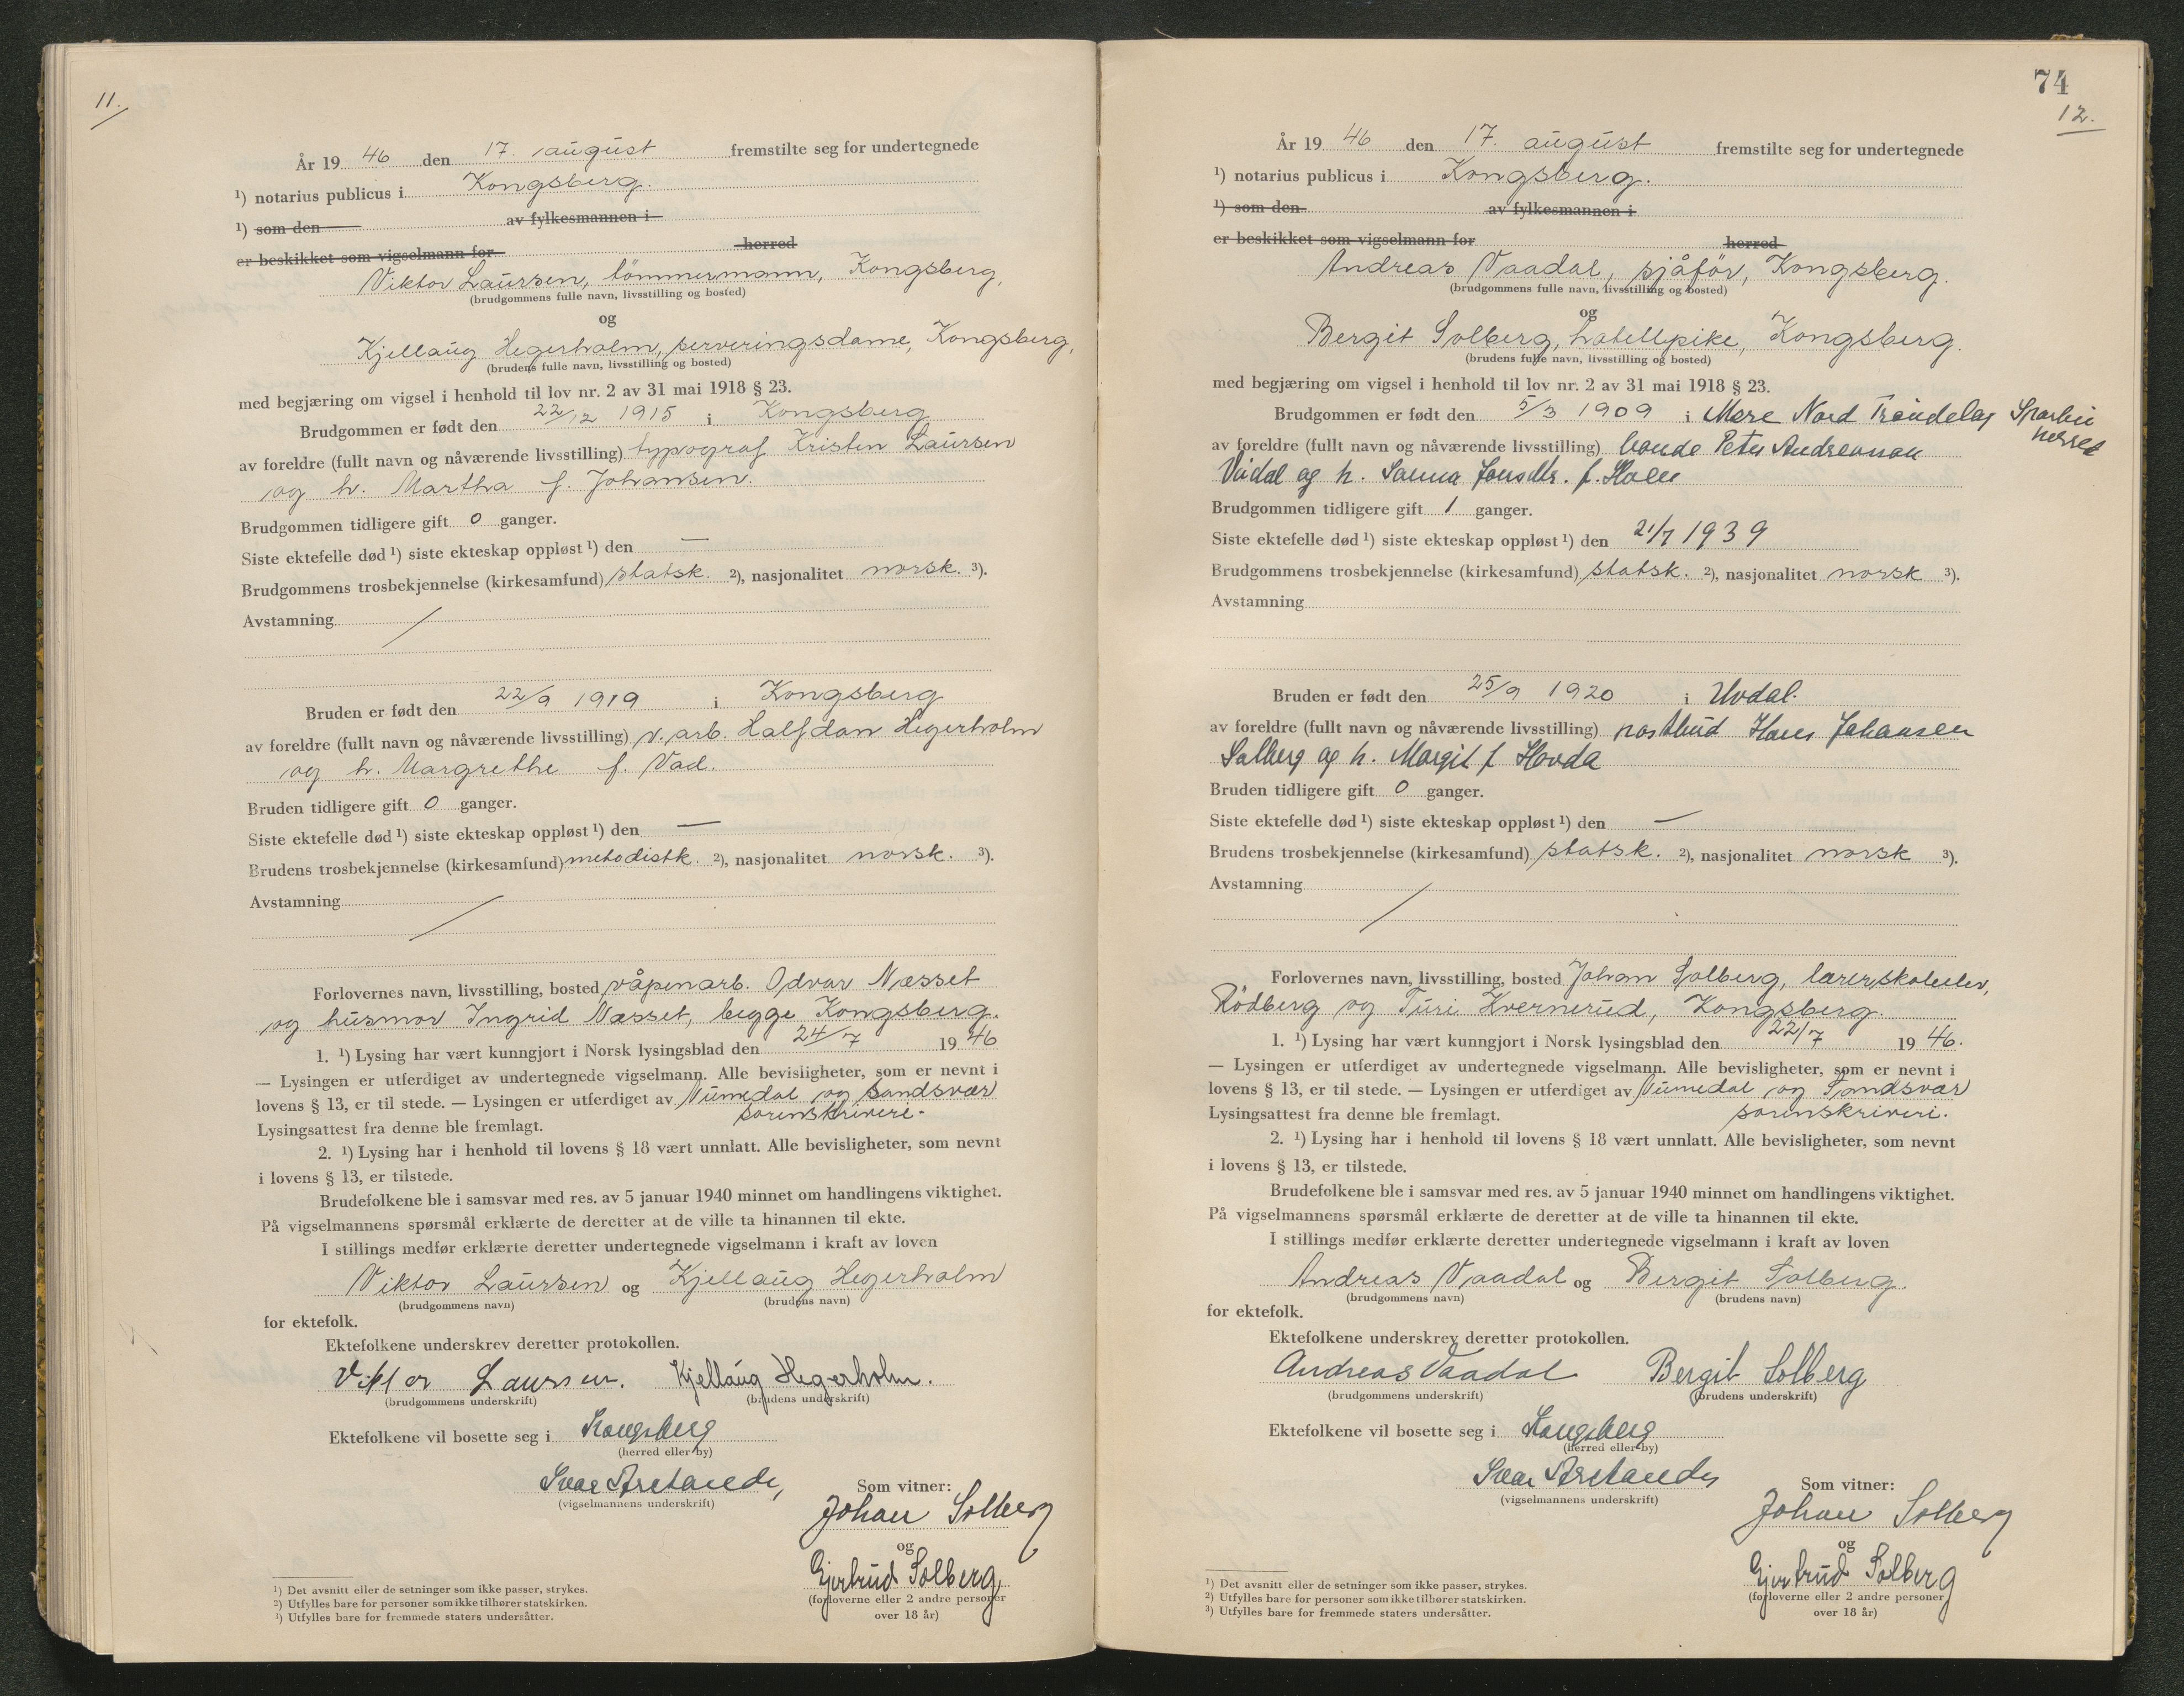 11.
År 19 46 den 17. august fremstilte seg for undertegnede
¹) notarius publicus i Kongsberg.
¹) som den av fylkesmannen i
er beskikket som vigselmann for herred
Viktor Laursen, tömmermann, Kongsberg,
(brudgommens fulle navn, livsstilling og bosted)
og
Kjellaug Hegerholm, serveringsdame, Kongsberg,
(brudens fulle navn, livsstilling og bosted)
med begjæring om vigsel i henhold til lov nr. 2 av 31 mai 1918 § 23.
Brudgommen er født den 22/12 1915 i Kongsberg
av foreldre (fullt navn og nåværende livsstilling) typograf Kristen Laursen
og h. Martha f. Johansen.
Brudgommen tidligere gift 0 ganger.
Siste ektefelle død ¹) siste ekteskap oppløst ¹) den —
Brudgommens trosbekjennelse (kirkesamfund) statsk. ²), nasjonalitet norsk. ³).
Avstamning /
Bruden er født den 22/9 1919 i Kongsberg
av foreldre (fullt navn og nåværende livsstilling) v.arb. Halfdan Hegerholm
og h. Margrethe f. Vad.
Bruden tidligere gift 0 ganger.
Siste ektefelle død ¹) siste ekteskap oppløst ¹) den —
Brudens trosbekjennelse (kirkesamfund) metodistk. ²), nasjonalitet norsk. ³).
Avstamning /
Forlovernes navn, livsstilling, bosted våpenarb. Odvar Næsset
og husmor Ingrid Næsset, begge Kongsberg.
1. ¹) Lysing har vært kunngjort i Norsk lysingsblad den 24/7 19 46
— Lysingen er utferdiget av undertegnede vigselmann. Alle bevisligheter, som er nevnt i
lovens § 13, er til stede. — Lysingen er utferdiget av Numedal og Sandsvær
sorenskriveri.
Lysingsattest fra denne ble fremlagt.
2. ¹) Lysing har i henhold til lovens § 18 vært unnlatt. Alle bevisligheter, som nevnt
i lovens § 13, er tilstede.
Brudefolkene ble i samsvar med res. av 5 januar 1940 minnet om handlingens viktighet.
På vigselmannens spørsmål erklærte de deretter at de ville ta hinannen til ekte.
I stillings medfør erklærte deretter undertegnede vigselmann i kraft av loven
Viktor Laursen og Kjellaug Hegerholm
(brudgommens navn) (brudens navn)
for ektefolk.
Ektefolkene underskrev deretter protokollen.
Viktor Laursen. Kjellaug Hegerholm.
(brudgommens underskrift) (brudens underskrift)
Ektefolkene vil bosette seg i Kongsberg
(herred eller by)
(vigselmannens underskrift)
Som vitner:
Johan Solberg
og
Gjertrud Solberg
(forloverne eller 2 andre personer
over 18 år)
¹) Det avsnitt eller de setninger som ikke passer, strykes.
²) Utfylles bare for personer som ikke tilhører statskirken.
¹) Utfylles bare for fremmede staters undersåtter.
74
12.
År 19 46 den 17. august fremstilte seg for undertegnede
¹) notarius publicus i Kongsberg.
¹) som den av fylkesmannen i
er beskikket som vigselmann for herred
Andreas Vaadal, sjåför, Kongsberg.
(brudgommens fulle navn, livsstilling og bosted)
og
Bergit Solberg, hotellpike, Kongsberg.
(brudens fulle navn, livsstilling og bosted)
med begjæring om vigsel i henhold til lov nr. 2 av 31 mai 1918 § 23.
Brudgommen er født den 5/3 1909 i Mære Nord Trøndelag Sparbu
herred
av foreldre (fullt navn og nåværende livsstilling) bonde Peter Andreassen
Vådal og h. Sanna Jonsdtr. f. Holen
Brudgommen tidligere gift 1 ganger.
Siste ektefelle død ¹) siste ekteskap oppløst ¹) den 21/7 1939
Brudgommens trosbekjennelse (kirkesamfund) statsk. ²), nasjonalitet norsk ³).
Avstamning
Bruden er født den 25/9 1920 i Uvdal.
av foreldre (fullt navn og nåværende livsstilling) postbud Hans Johansen
Solberg og h. Margit f Hovda
Bruden tidligere gift 0 ganger.
Siste ektefelle død ¹) siste ekteskap oppløst ¹) den —
Brudens trosbekjennelse (kirkesamfund) statsk. ²), nasjonalitet norsk ³).
Avstamning /
Forlovernes navn, livsstilling, bosted Johan Solberg, lærerskoleelev,
Rödberg og Turi Kvernerud, Kongsberg.
1. ¹) Lysing har vært kunngjort i Norsk lysingsblad den 22/7 19 46.
— Lysingen er utferdiget av undertegnede vigselmann. Alle bevisligheter, som er nevnt i
lovens § 13, er til stede. — Lysingen er utferdiget av Numedal og Sandsvær
Lysingsattest fra denne ble fremlagt. sorenskriveri.
2. ¹) Lysing har i henhold til lovens § 18 vært unnlatt. Alle bevisligheter, som nevnt
i lovens § 13, er tilstede.
Brudefolkene ble i samsvar med res. av 5 januar 1940 minnet om handlingens viktighet.
På vigselmannens spørsmål erklærte de deretter at de ville ta hinannen til ekte.
I stillings medfør erklærte deretter undertegnede vigselmann i kraft av loven
Andreas Vaadal og Bergit Solberg.
(brudgommens navn) (brudens navn)
for ektefolk.
Ektefolkene underskrev deretter protokollen.
Andreas Vaadal Bergit Solberg
(brudgommens underskrift) (brudens underskrift)
Ektefolkene vil bosette seg i Kongsberg
(herred eller by)
(vigselmannens underskrift)
Som vitner:
Johan Solberg
og
Gjertrud Solberg
(forloverne eller 2 andre personer
over 18 år)
¹) Det avsnitt eller de setninger som ikke passer, strykes.
²) Utfylles bare for personer som ikke tilhører statskirken.
³) Utfylles bare for fremmede staters undersåtter.